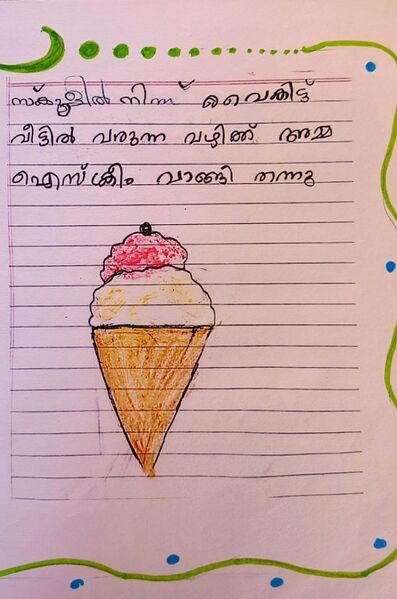 സ്കൂളിൽ നിന്ന് വൈകിട്ട്
വീട്ടിൽ വരുന്ന വഴിക്ക് അമ്മ
ഐസ്ക്രീം വാങ്ങി തന്നു